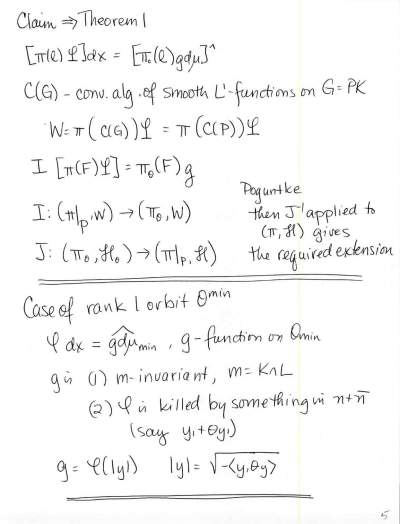 Claim ⇒ Theorem 1
[π(l)φ]dx = [π₀(l)gdμ]^
C(G) - conv. alg. of smooth L¹-functions on G=PK
W = π(C(G))φ = π(C(P))φ
I [π(F)φ] = π₀(F)g
I: (π|_P, W) → (π₀, W)
J: (π₀, H₀) → (π|_P, H)
Poguntke
then J⁻¹ applied to
(π, H) gives
the required extension
Case of rank 1 orbit O^min
φ dx = \widehat{gdμ}_min, g-function on O_min
g is (1) m-invariant, m = K∩L
(2) φ is killed by something in n+n̄
(say y₁+θy₁)
g = φ(|y|) |y| = √-⟨y,θy⟩
5